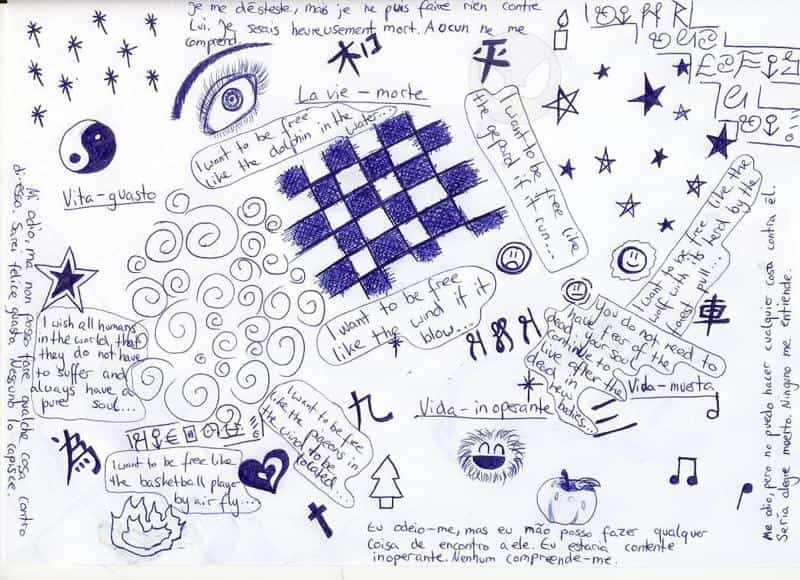 Je me déteste, mais je ne puis faire rien contre
Lui. Je serais heureusement mort. Aocun ne me
comprend.
杯口
平
La vie - morte
I want to be free
like the dolphin in the
water...
I want to be free like
the gepard if it run...
Vita - guasto
Mi odio, ma non posso fare qualche cosa contro
di esso. Sarei felice guasto. Nessuno lo capisce.
I want to be free like the
wolf with its herd by the
forest pull...
Me odio, pero no puedo hacer cualquier cosa contra él.
Sería alegre muerto. Ninguno me entiende.
I want to be free
like the wind if it
blow...
I wish all humans
in the world, that
they do not have
to suffer and
always have a
pure soul...
you do not need to
have fear of the
dead, your soul
continue to
live after the
dead in
new
bodies...
車
Vida - muerta
Vida - inoperante
九
I want to be free
like the pigeons in
the wind to be
located...
為
I want to be free like
the basketball player
by air fly...
Eu odeio-me, mas eu mão posso fazer qualquer
Coisa de encontro a ele. Eu estaria contente
inoperante. Nenhum compreende-me.